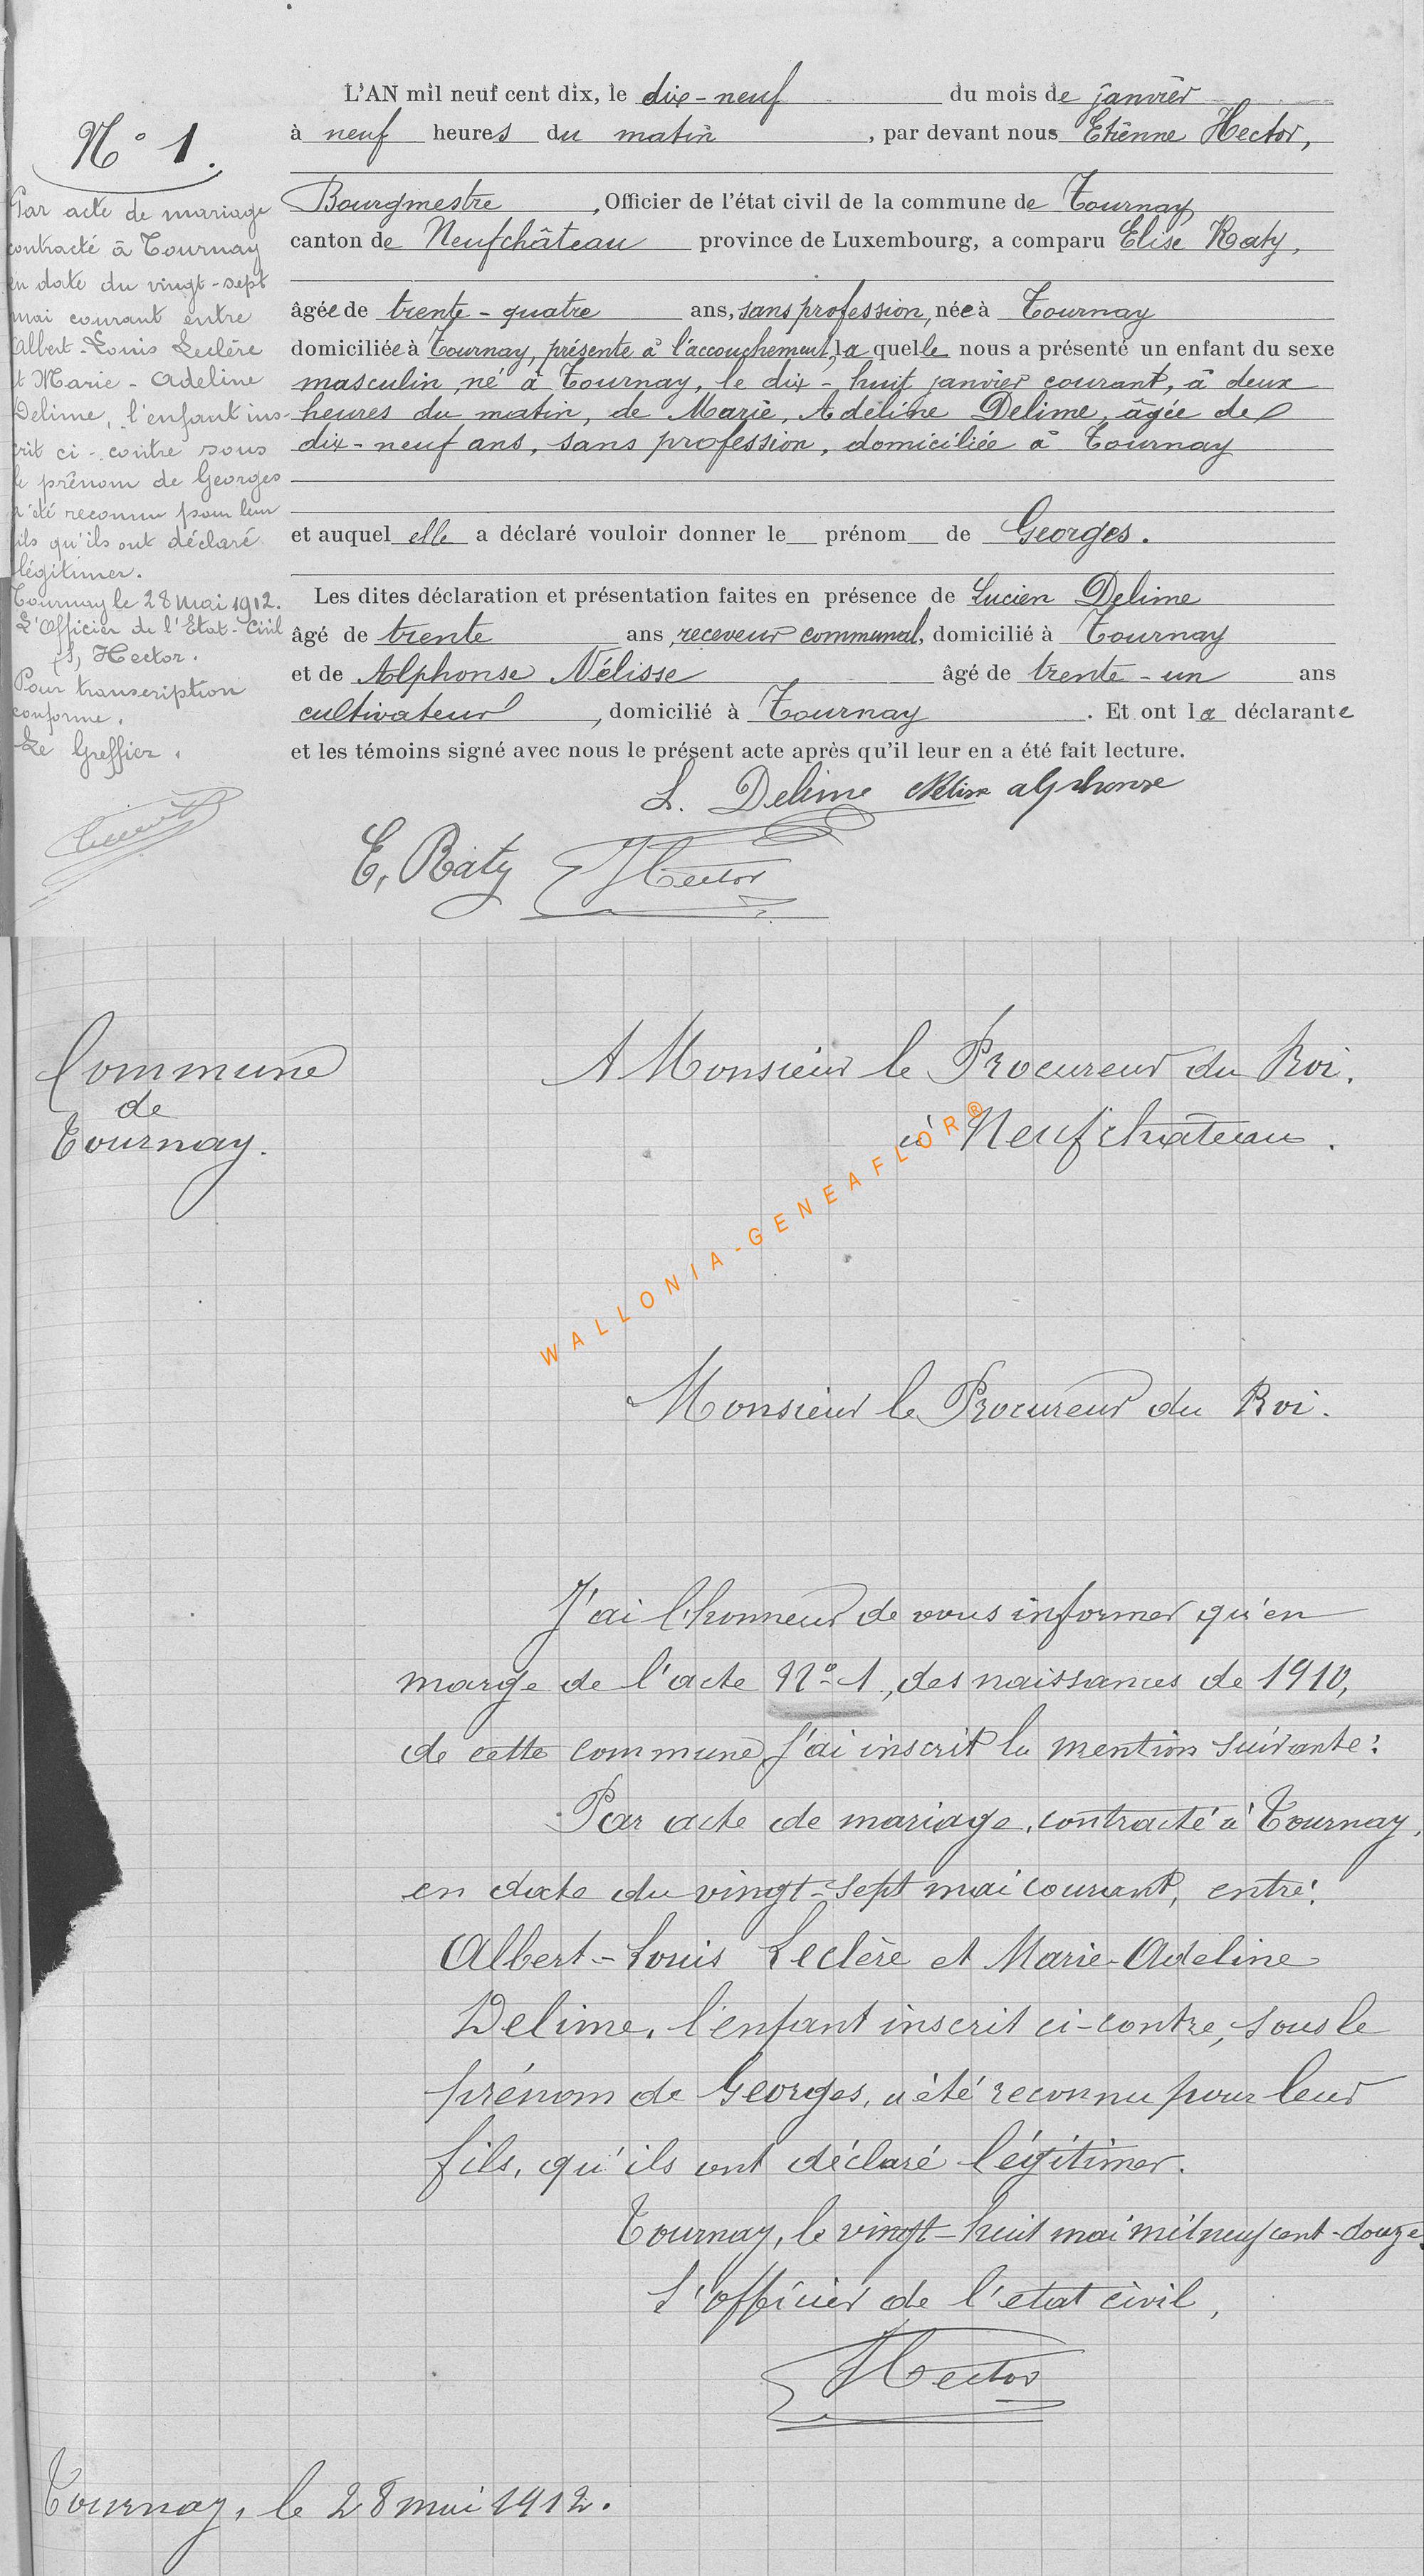 N° 1.
Par acte de mariage
contracté à Tournay
en date du vingt-sept
mai courant entre
Albert-Louis Leclère
et Marie-Adeline
Delime, l'enfant ins-
crit ci-contre sous
le prénom de Georges
a été reconnu pour leur
fils qu'ils ont déclaré
légitimer.
Tournay le 28 mai 1912.
L'Officier de l'Etat-Civil
(s) Hector.
Pour transcription
conforme.
Le Greffier.
L'AN mil neuf cent dix, le dix-neuf du mois de janvier
à neuf heures du matin, par devant nous Etienne Hector,
Bourgmestre, Officier de l'état civil de la commune de Tournay
canton de Neufchâteau province de Luxembourg, a comparu Elise Raty,
âgée de trente-quatre ans, sans profession, née à Tournay
domiciliée à Tournay, présente à l'accouchement, laquelle nous a présenté un enfant du sexe
masculin, né à Tournay, le dix-huit janvier courant, à deux
heures du matin, de Marie, Adeline Delime, âgée de
dix-neuf ans, sans profession, domiciliée à Tournay
et auquel elle a déclaré vouloir donner le prénom de Georges.
Les dites déclaration et présentation faites en présence de Lucien Delime
âgé de trente ans, receveur communal, domicilié à Tournay
et de Alphonse Nélisse âgé de trente-un ans
cultivateur, domicilié à Tournay. Et ont la déclarante
et les témoins signé avec nous le présent acte après qu'il leur en a été fait lecture.
L. Delime Nélisse alphonse
E. Raty Hector
Commune
de
Tournay.
A Monsieur le Procureur du Roi.
à Neufchâteau.
WALLONIA-GENEAFLOR®
Monsieur le Procureur du Roi.
J'ai l'honneur de vous informer qu'en
marge de l'acte N°-1, des naissances de 1910,
de cette commune, j'ai inscrit la mention suivante:
Par acte de mariage, contracté à Tournay,
en date du vingt-sept mai courant, entre:
Albert-Louis Leclère et Marie-Adeline
Delime, l'enfant inscrit ci-contre, sous le
prénom de Georges, a été reconnu pour leur
fils, qu'ils ont déclaré légitimer.
Tournay, le vingt-huit mai mil neuf cent-douze.
L'officier de l'etat civil,
Hector
Tournay, le 28 mai 1912.